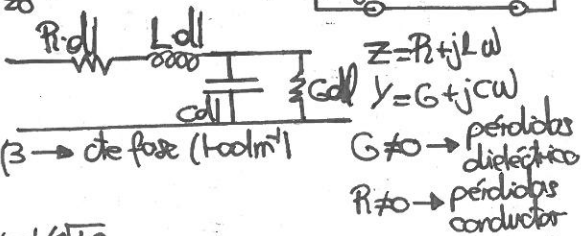 20
R·dl Ldl
Cdl Gdl
Z=R+jLω
Y=G+jCω
β → cte fase (rad m⁻¹)
G≠0 → pérdidas
dieléctrico
R≠0 → pérdidas
conductor